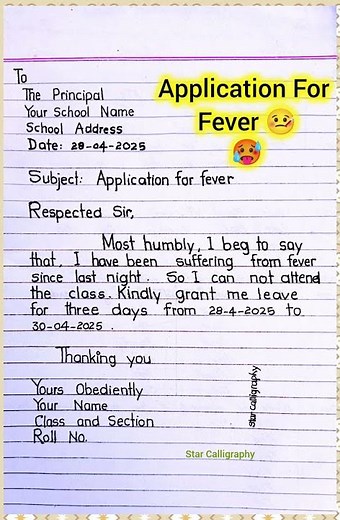 To
The Principal
Your School Name
School Address
Date: 28-04-2025
Application For
Fever 🤒
🥵
Subject: Application for fever
Respected Sir,
Most humbly, I beg to say
that, I have been suffering from fever
since last night. So I can not attend
the class. Kindly grant me leave
for three days from 28-4-2025 to
30-04-2025.
Thanking you
Yours Obediently
Your Name
Class and Section
Roll No.
Star Calligraphy
Star Calligraphy